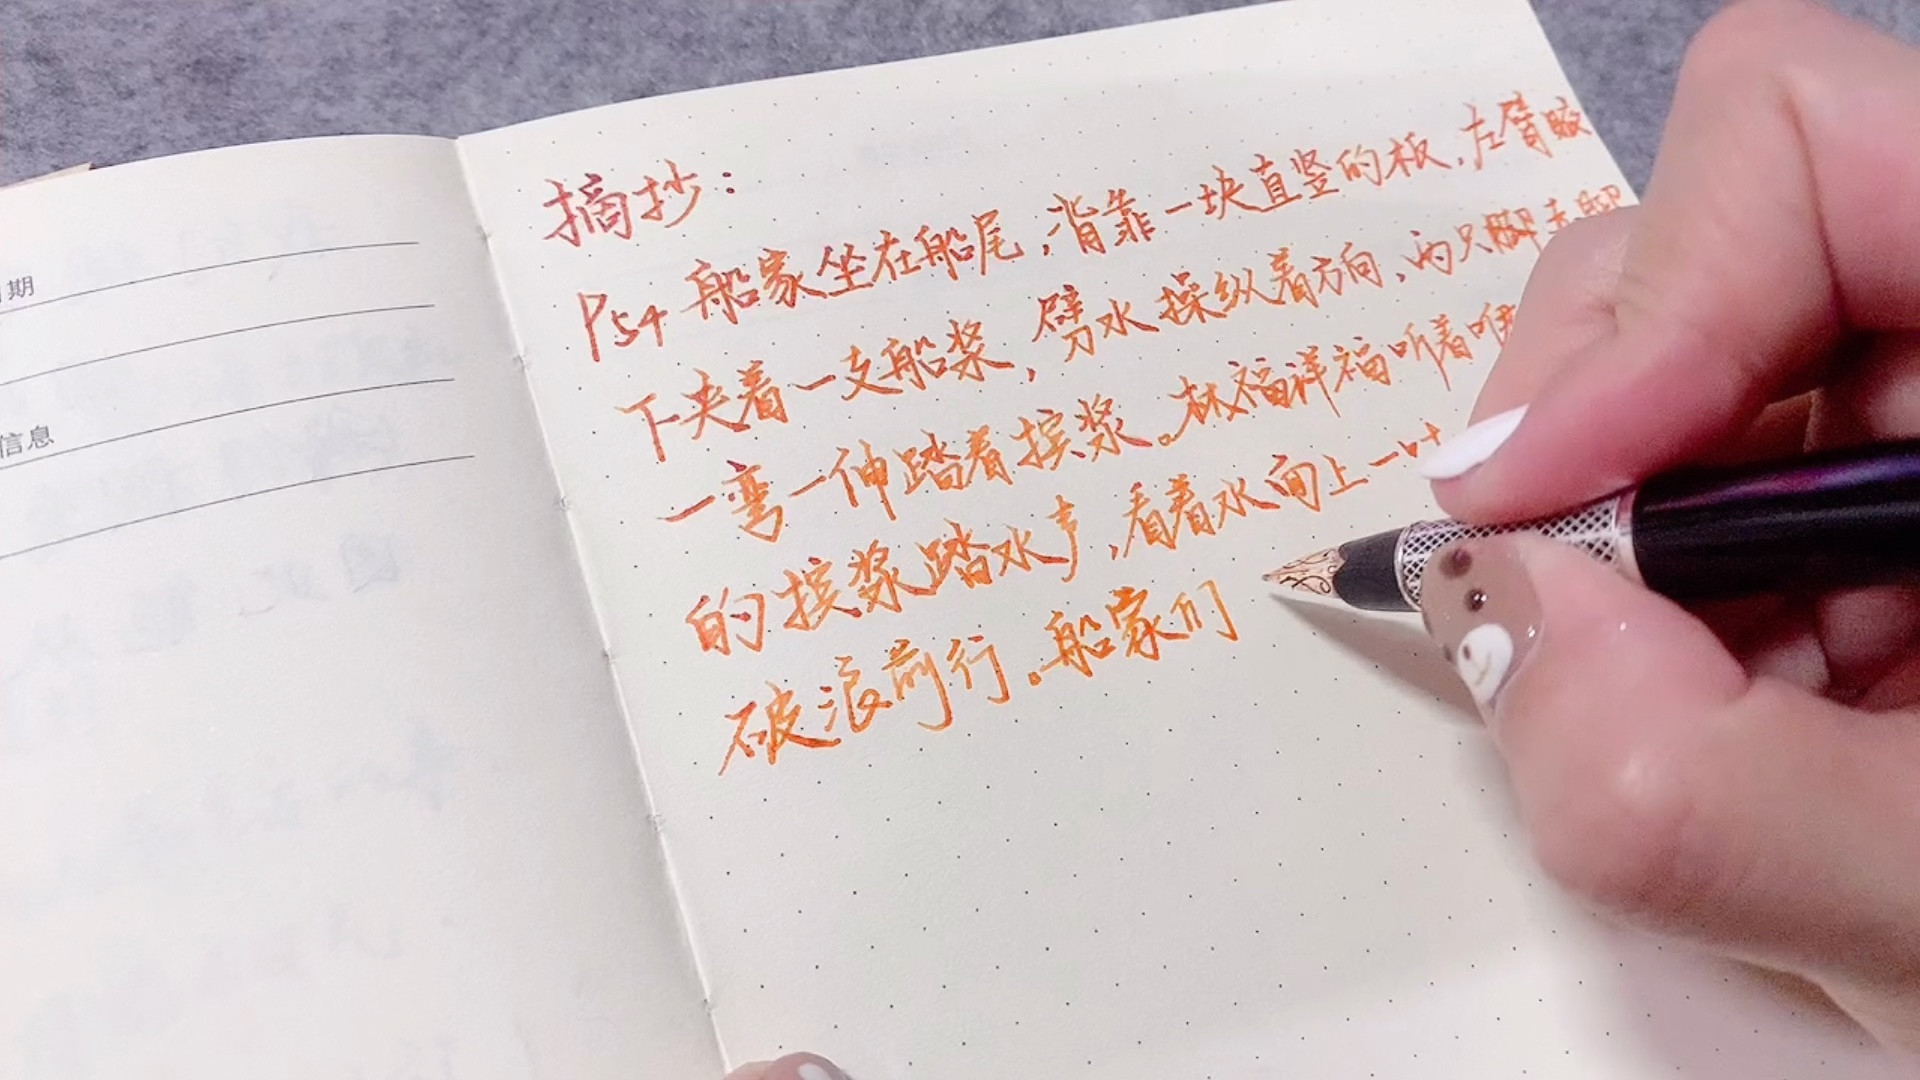 期
信息
摘抄：
P54 船家坐在船尾，背靠一块直竖的板，左臂腋
下夹着一支船桨，劈水操纵着方向，两只脚
一弯一伸踏着摈桨。林福祥福听着
的摈桨踏水声，看着水面上一叶
破浪前行。船家们